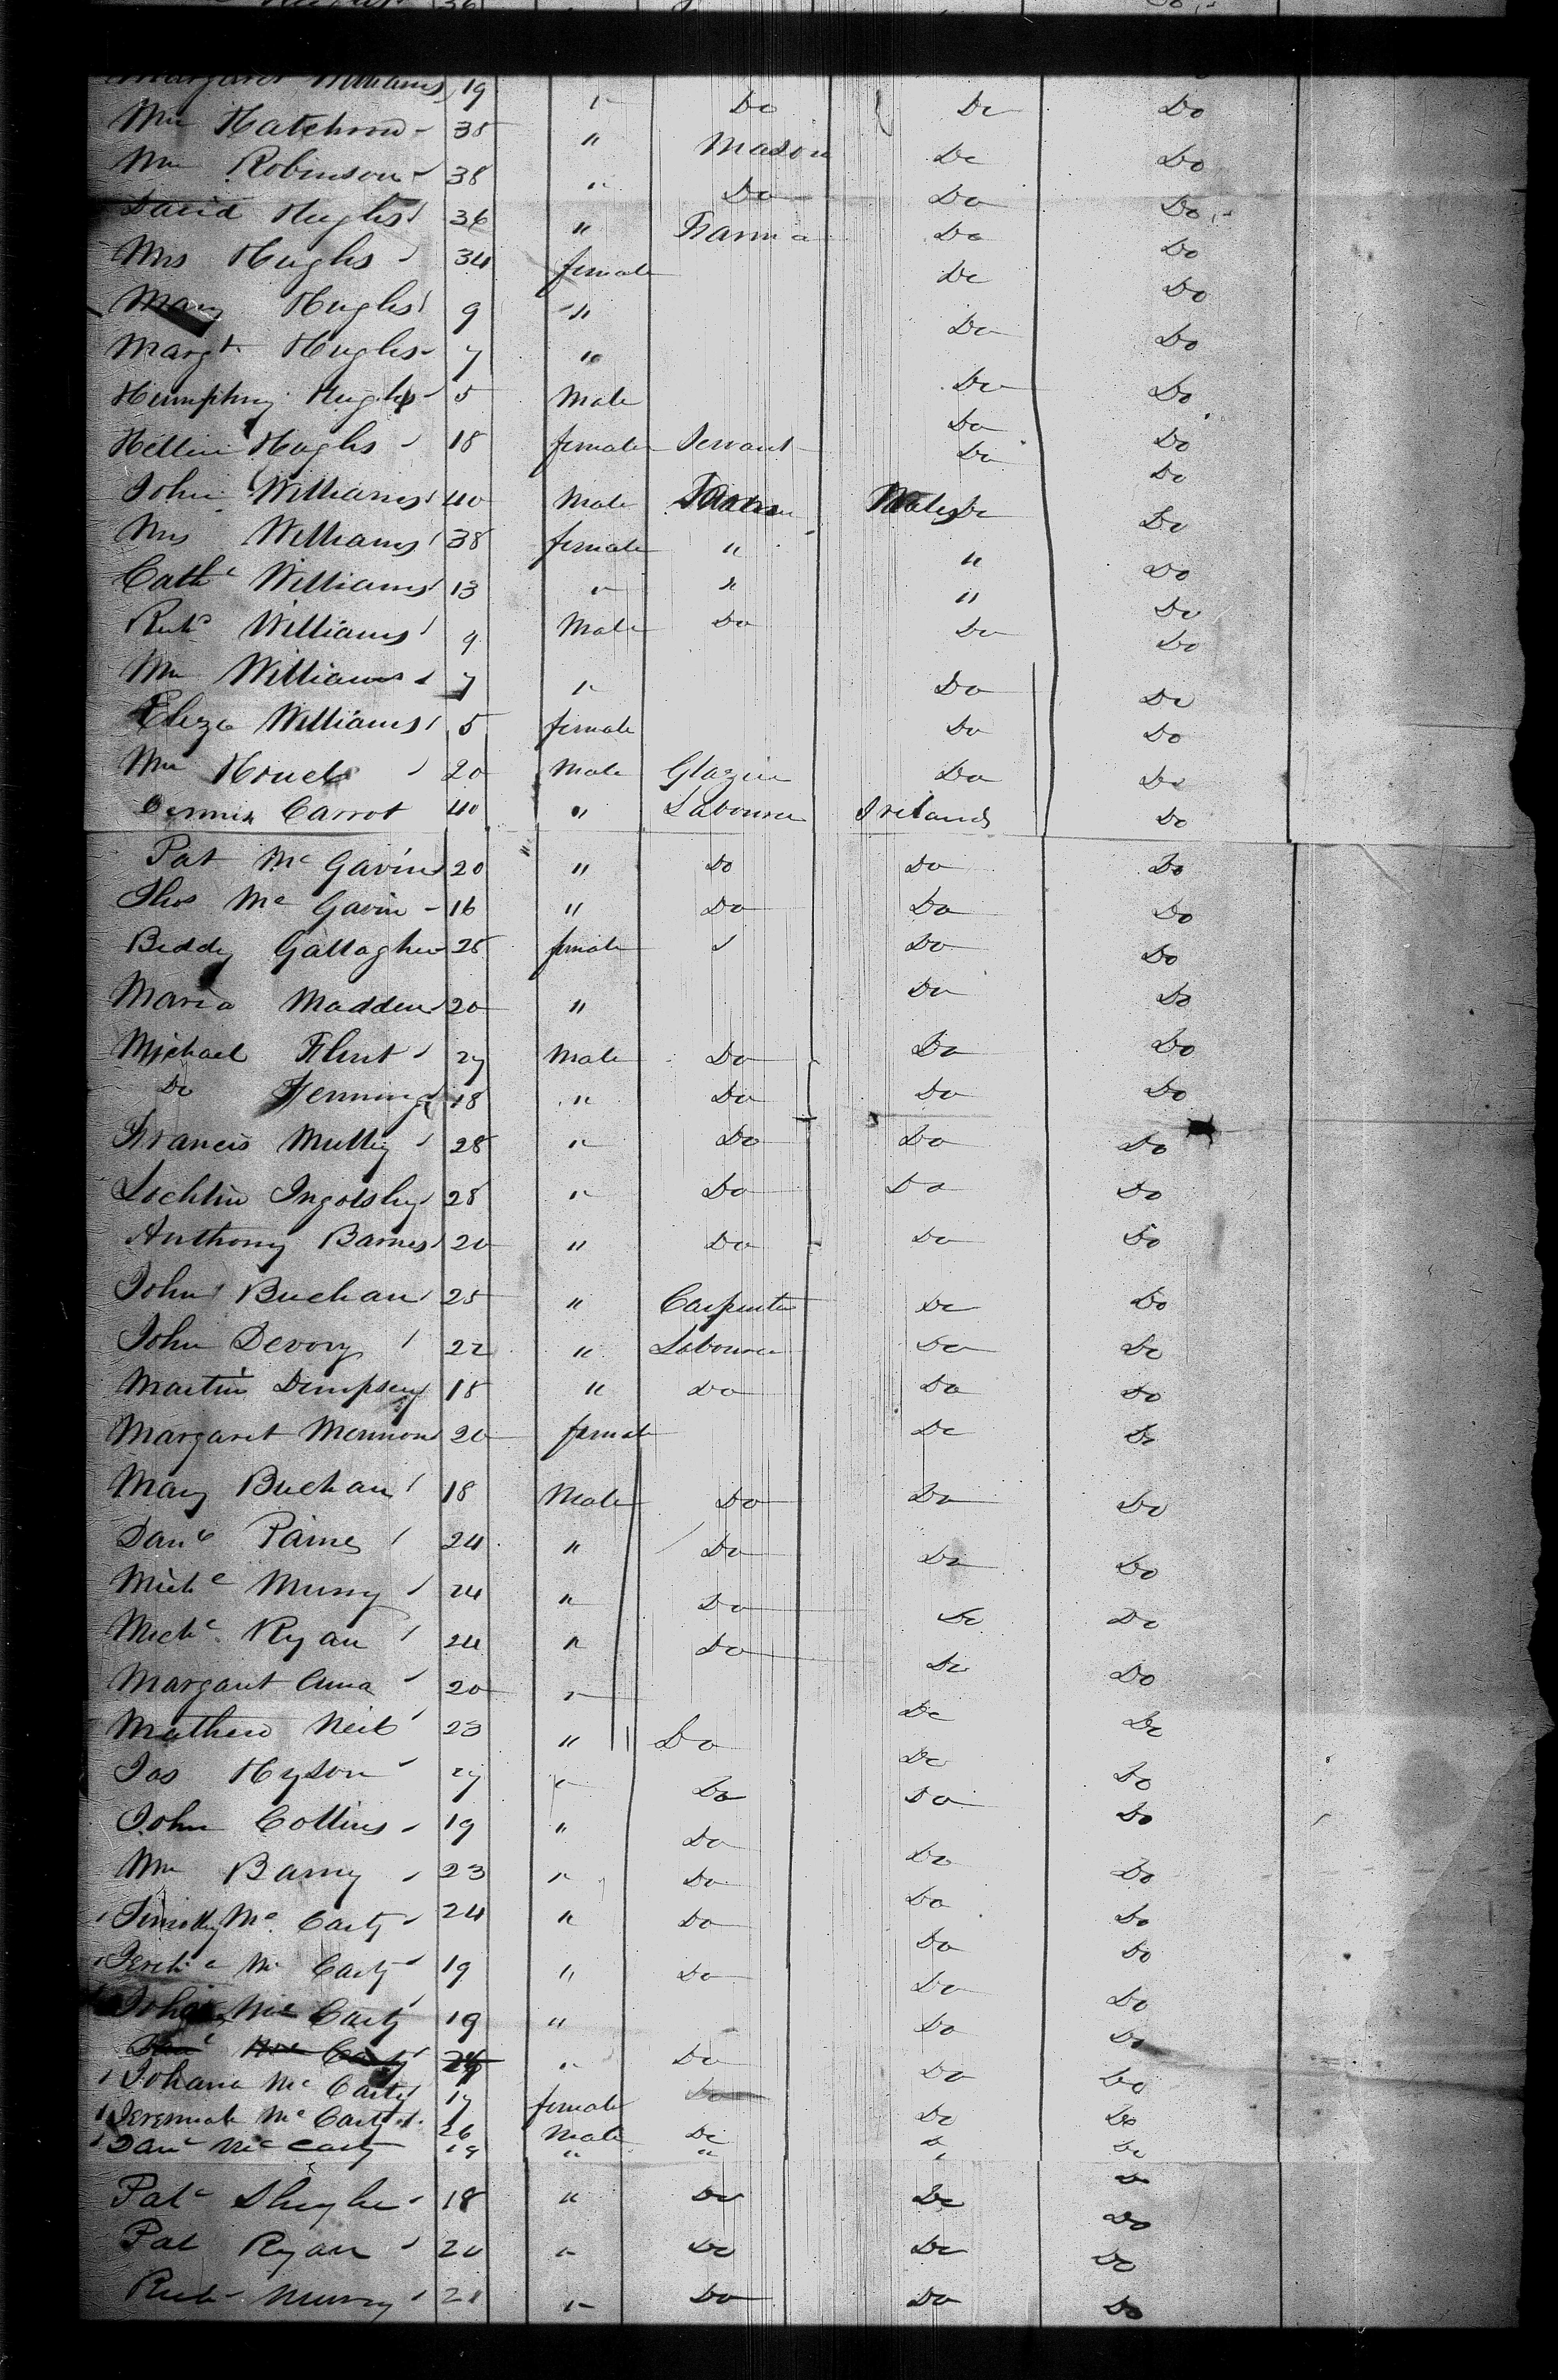 Margaret Williams 19 " Do Do Do
Wm Hatchman 38 " Mason Do Do
Wm Robinson 38 " Do Do Do
David Hughs 36 " Farmer Do Do
Mrs Hughs 34 female Do Do
Mary Hughs 9 " Do Do
Margt Hughs 7 " Do Do
Humphry Hughs 5 Male Do Do
Hughs 18 female Servant Do Do
John Williams 40 Male Wales Do Do
Mrs Williams 38 female " " Do
Cathe Williams 13 " " " Do
Richd Williams 9 Male Do Do Do
Wm Williams 7 " Do Do
Eliza Williams 5 female Do Do
Wm 20 Male Glazier Do Do
Dennis Carrot 40 " Labourer Ireland Do
Pat Mc Gavin 20 " Do Do Do
Thos Mc Gavin 16 " Do Do Do
Biddy Gallagher 25 female Do Do
Maria Madden 20 " Do Do
Michael Flint 27 Male Do Do Do
Do Fenning 18 " Do Do Do
Francis Mully 28 " Do Do Do
Lochlin Ingolsby 28 " Do Do Do
Anthony Barnes 20 " Do Do Do
John Buchan 25 " Carpenter Do Do
John Devory 22 " Labourer Do Do
Martin Dempsey 18 " Do Do Do
Margaret Mermon 20 female Do Do
Mary Buchan 18 Male Do Do Do
Danl Paine 24 " Do Do Do
Michl Murry 24 " Do Do Do
Michl Ryan 24 " Do Do Do
Margaret 20 " Do Do
Mathew Neil 23 " Do Do Do
Jas Hyson 27 " Do Do Do
John Collins 19 " Do Do Do
Wm Barry 23 " Do Do Do
Timothy Mc Carty 24 " Do Do Do
Mc Carty 19 " Do Do Do
Mc Carty 19 " Do Do
Danl Mc Carty " Do Do Do
Johana Mc Carty 17 female Do Do Do
Jeremiah Mc Carty 26 Male Do Do Do
Danl Mc Carty 19 " " " Do
Pat 18 " Do Do Do
Pat Ryan 20 " Do Do Do
Richd Murry 21 " Do Do Do